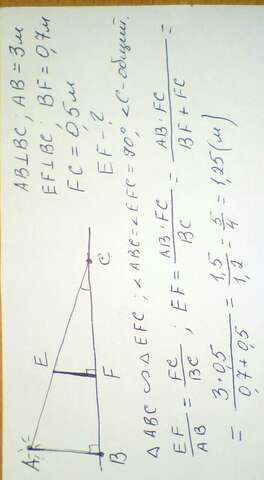 AB⊥BC; AB = 3м
EF⊥BC; BF = 0,7м
FC = 0,5м
EF - ?
A
E
B
F
C
△ABC ∽ △EFC; ∠ABC = ∠EFC = 90°, ∠C - общий.
EF/AB = FC/BC ; EF = AB·FC/BC = AB·FC/BF + FC =
= 3·0,5/0,7+0,5 = 1,5/1,2 = 5/4 = 1,25(м)